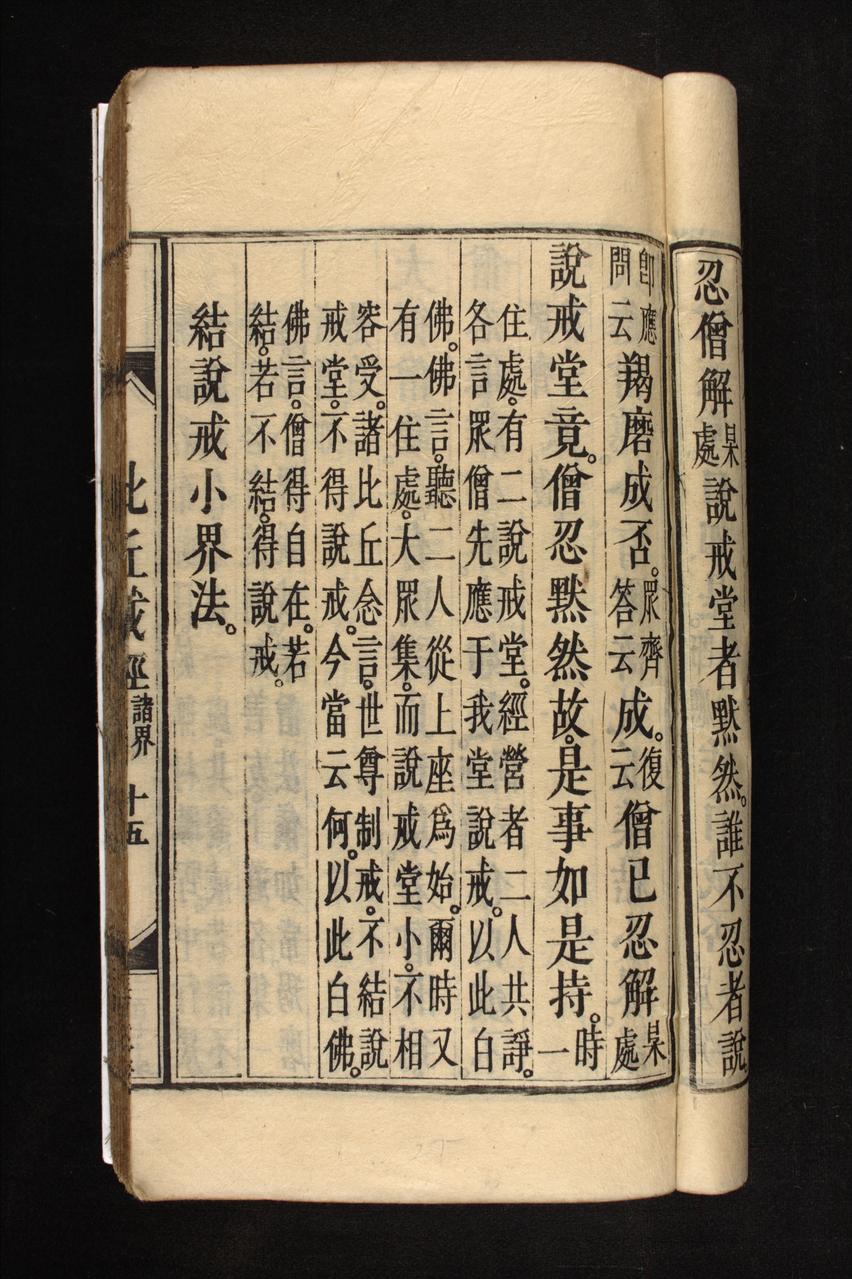 忍僧解某處說戒堂者默然。誰不忍者說。
即應問云羯磨成否。眾齊答云成。復云僧已忍解某處
說戒堂竟。僧忍默然故。是事如是持。時一
住處。有二說戒堂。經營者二人共諍。
各言眾僧先應于我堂說戒。以此白
佛。佛言。聽二人從上座為始。爾時又
有一住處。大眾集。而說戒堂小。不相
容受。諸比丘念言。世尊制戒。不結說
戒堂。不得說戒。今當云何。以此白佛。
佛言。僧得自在。若
結。若不結。得說戒。
結說戒小界法。
比丘戒經 諸界 十五